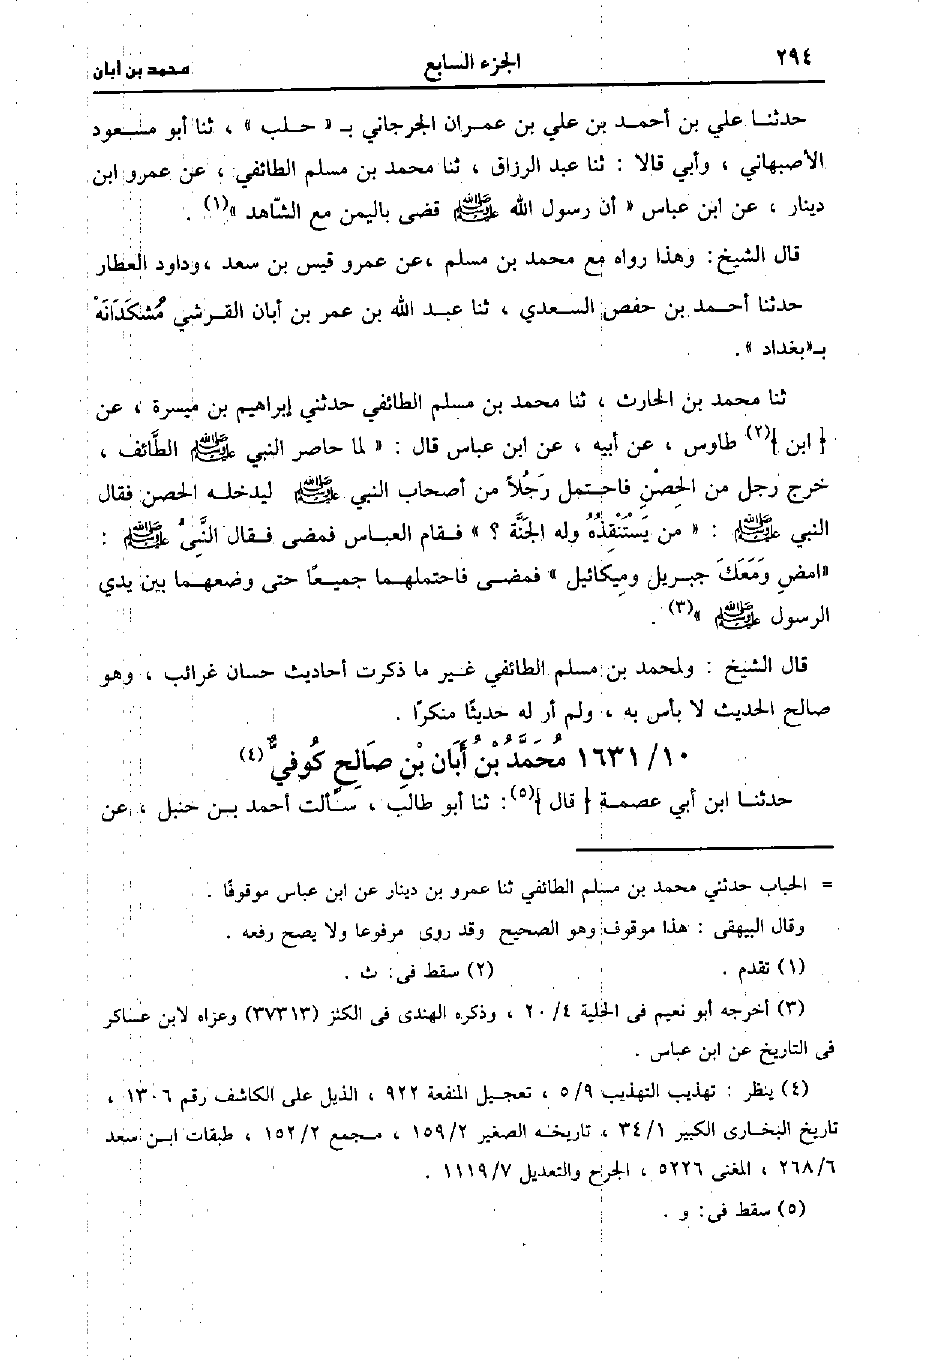 ٢٩٤
الجزء السابع
محمد بن أبان
حدثنـا علي بن أحمـد بن علي بن عمـران الجرجاني بـ « حـلب » ، ثنا أبو مسـعود
الأصبهاني ، وأبي قالا : ثنا عبد الرزاق ، ثنا محمد بن مسلم الطائفي ، عن عمرو ابن
دينار ، عن ابن عباس « أن رسول الله ﷺ قضى باليمن مع الشّاهد »(١) .
قال الشيخ : وهذا رواه مع محمد بن مسلم ،عن عمرو قيس بن سعد ،وداود العطار
حدثنا أحـمد بن حفص السـعدي ، ثنا عبـد الله بن عمر بن أبان القـرشي مُشكَدَانَهْ
بـ«بغداد » .
ثنا محمد بن الحارث ، ثنا محمد بن مسلم الطائفي حدثني إبراهيم بن ميسرة ، عن
{ ابن }(٢) طاوس ، عن أبيه ، عن ابن عباس قال : « لما حاصر النبي ﷺ الطَّائف ،
خرج رجل من الحِصْنِ فاحـتمل رَجُلاً من أصحاب النبي ﷺ ليدخلـه الحصن فقال
النبي ﷺ : « من يَسْتَنْقِذُهُ وله الجَنَّة ؟ » فـقام العباس فمضى فـقال النَّبِىُّ ﷺ :
«امضِ وَمَعَكَ جبـريل وميكائيل » فمضـى فاحتملهـما جميـعًا حتى وضعهـما بين يدي
الرسول ﷺ »(٣) .
قال الشيخ : ولمحمد بن مسلم الطائفي غـير ما ذكرت أحاديث حسان غرائب ، وهو
صالح الحديث لا بأس به ، ولم أر له حديثًا منكرًا .
١٠/ ١٦٣١ مُحَمَّدُ بْنُ أَبَان بْنِ صَالِحٍ كُوفيٌّ(٤)
حدثنـا ابن أبي عصمـة { قال }(٥): ثنا أبو طالب ، سـألت أحمد بـن حنبل ، عن
= الحباب حدثني محمد بن مسلم الطائفي ثنا عمرو بن دينار عن ابن عباس موقوفًا .
وقال البيهقى : هذا موقوف وهو الصحيح وقد روى مرفوعا ولا يصح رفعه .
(١) تقدم .
(٢) سقط فى: ث .
(٣) أخرجه أبو نعيم فى الحلية ٤/ ٢٠ ، وذكره الهندى فى الكنز (٣٧٣١٣) وعزاه لابن عساكر
فى التاريخ عن ابن عباس .
(٤) ينظر : تهذيب التهذيب ٥/٩ ، تعجيل المنفعة ٩٢٢ ، الذيل على الكاشف رقم ١٣٠٦ ،
تاريخ البخارى الكبير ٣٤/١ ، تاريخه الصغير ١٥٩/٢ ، مـجمع ١٥٢/٢ ، طبقات ابـن سعد
٢٦٨/٦ ، المغنى ٥٢٢٦ ، الجرح والتعديل ١١١٩/٧ .
(٥) سقط فى: و .